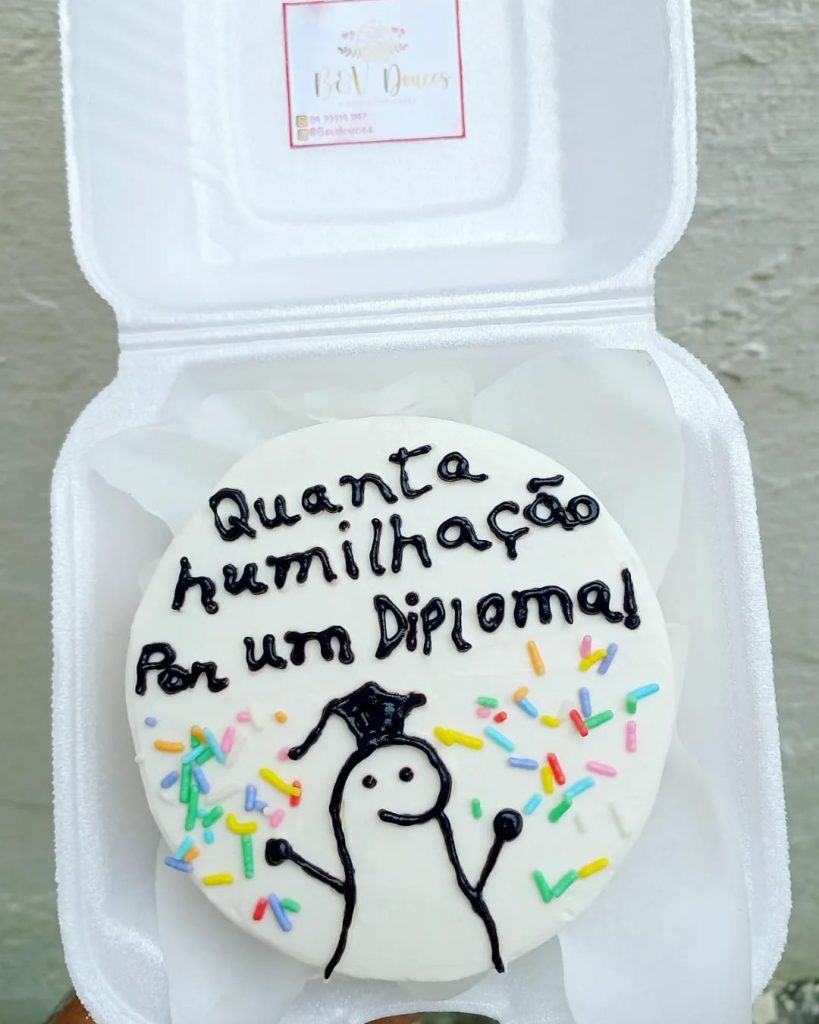 B&V Douces
@Bevdouces
Quanta
humilhação
Por um Diploma!